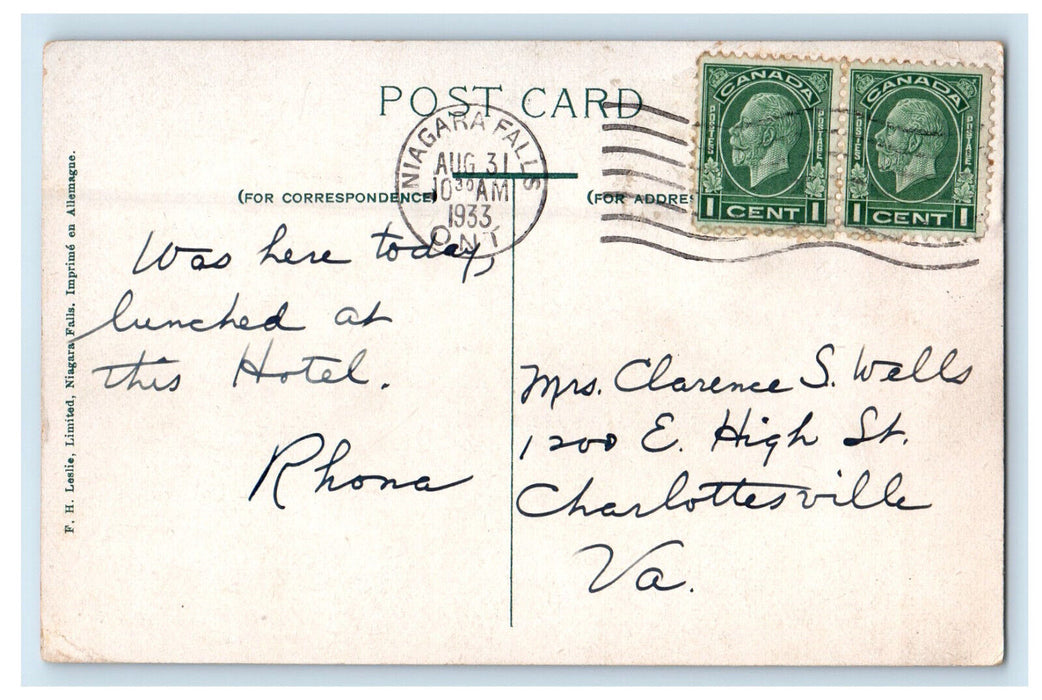 POST CARD
NIAGARA FALLS
AUG 31
10 30 AM
1933
ONT
CANADA
POSTES
POSTAGE
1 CENT 1
CANADA
POSTES
POSTAGE
1 CENT 1
(FOR CORRESPONDENCE)
(FOR ADDRES
Was here today,
lunched at
this Hotel.
Rhona
Mrs. Clarence S. Wells
1200 E. High St.
Charlottesville
Va.
F. H. Leslie, Limited, Niagara Falls. Imprimé en Allemagne.